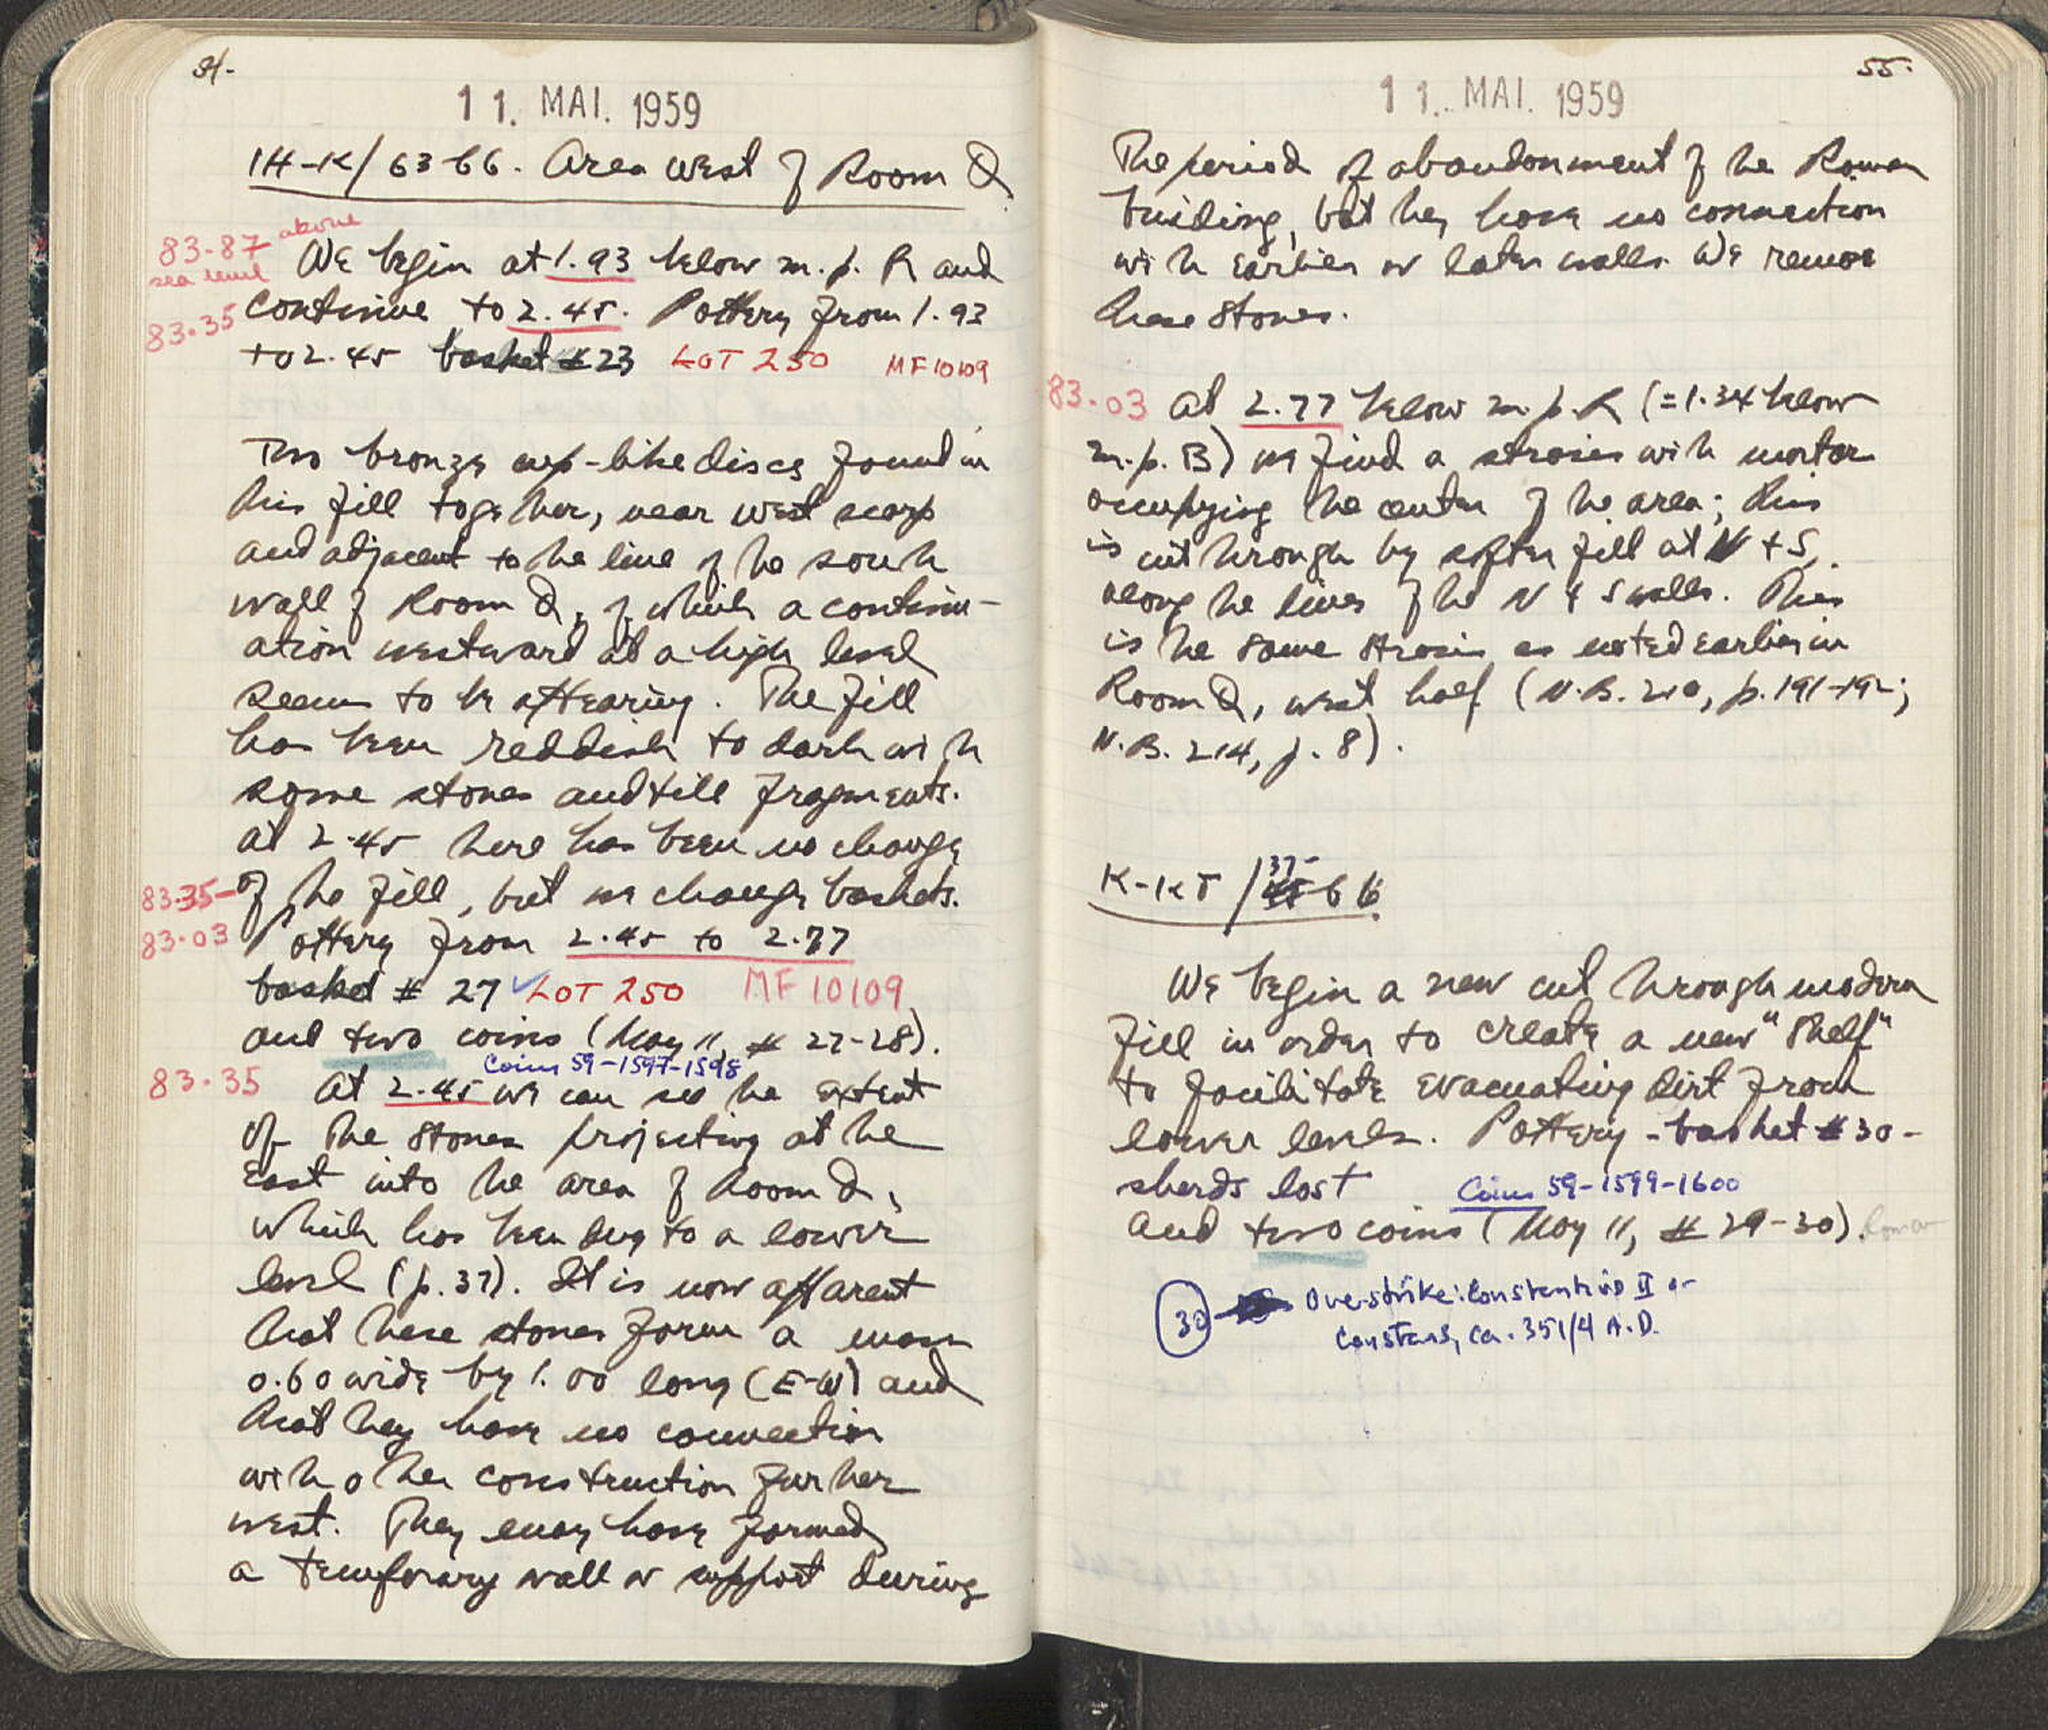 54.
11. MAI. 1959
IH-K/63-66. Area West of Room Q.
83.87 above
sea level
We begin at 1.93 below m.p. R and
83.35
continue to 2.45. Pottery from 1.93
to 2.45 basket #23 LOT 250 MF 10109
Two bronze cup-like discs found in
this fill together, near west scarp
and adjacent to the line of the south
wall of Room Q, of which a continu-
ation westward at a high level
seems to be appearing. The fill
has been reddish to dark with
some stones and tile fragments.
At 2.45 there has been no change
83.35-
of the fill, but we change baskets.
83.03
Pottery from 2.45 to 2.77
basket # 27 LOT 250 MF 10109
and two coins (May 11, # 27-28).
Coins 59-1597-1598
83.35
At 2.45 we can see the extent
of the stones projecting at the
East into the area of Room Q,
which has been dug to a lower
level (p. 37). It is now apparent
that these stones form a mass
0.60 wide by 1.00 long (E-W) and
that they have no connection
with other construction further
west. They may have formed
a temporary wall or support during
55.
11. MAI. 1959
The period of abandonment of the Roman
building, but they have no connection
with earlier or later walls. We remove
these stones.
83.03
At 2.77 below m.p. R (=1.34 below
m.p. B) we find a strosis with mortar
occupying the center of the area; this
is cut through by softer fill at N + S,
along the lines of the N + S walls. This
is the same strosis as noted earlier in
Room Q, west half (N.B. 210, p. 191-192;
N.B. 214, p. 8).
K-KT/37-66
We begin a new cut through modern
fill in order to create a new "shelf"
to facilitate evacuating dirt from
lower levels. Pottery - basket #30 -
sherds lost
Coins 59-1599-1600
and two coins (May 11, # 29-30). Roman
30 Overstrike: Constantius II or
Constans, ca. 351/4 A.D.